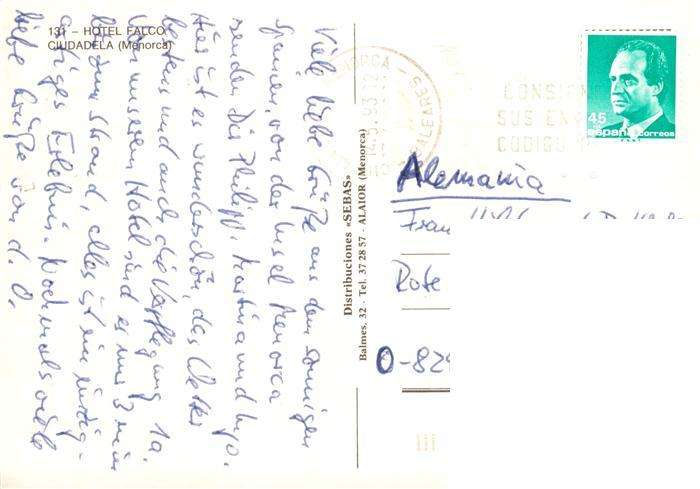 131 - HOTEL FALCO
CIUDADELA (Menorca)
Viele liebe Grüße aus dem sonnigen
Spanien, von der Insel Menorca
senden Dir Philipp, Martina und Ingo.
Hier ist es wunderschön, das Wetter
bestens und auch die Verpflegung 1a.
Von unserem Hotel sind es nur 3 min
bis zum Strand alles ist ein einzig-
artiges Erlebnis. Nochmals viele
liebe Grüße von d. O.
Distribuciones «SEBAS»
Balmes, 32 - Tel. 37 28 57 - ALAIOR (Menorca)
CONSIGNE
SUS ENV
CODIGO
45
españa correos
Alemania
Frau
Rote
O-829